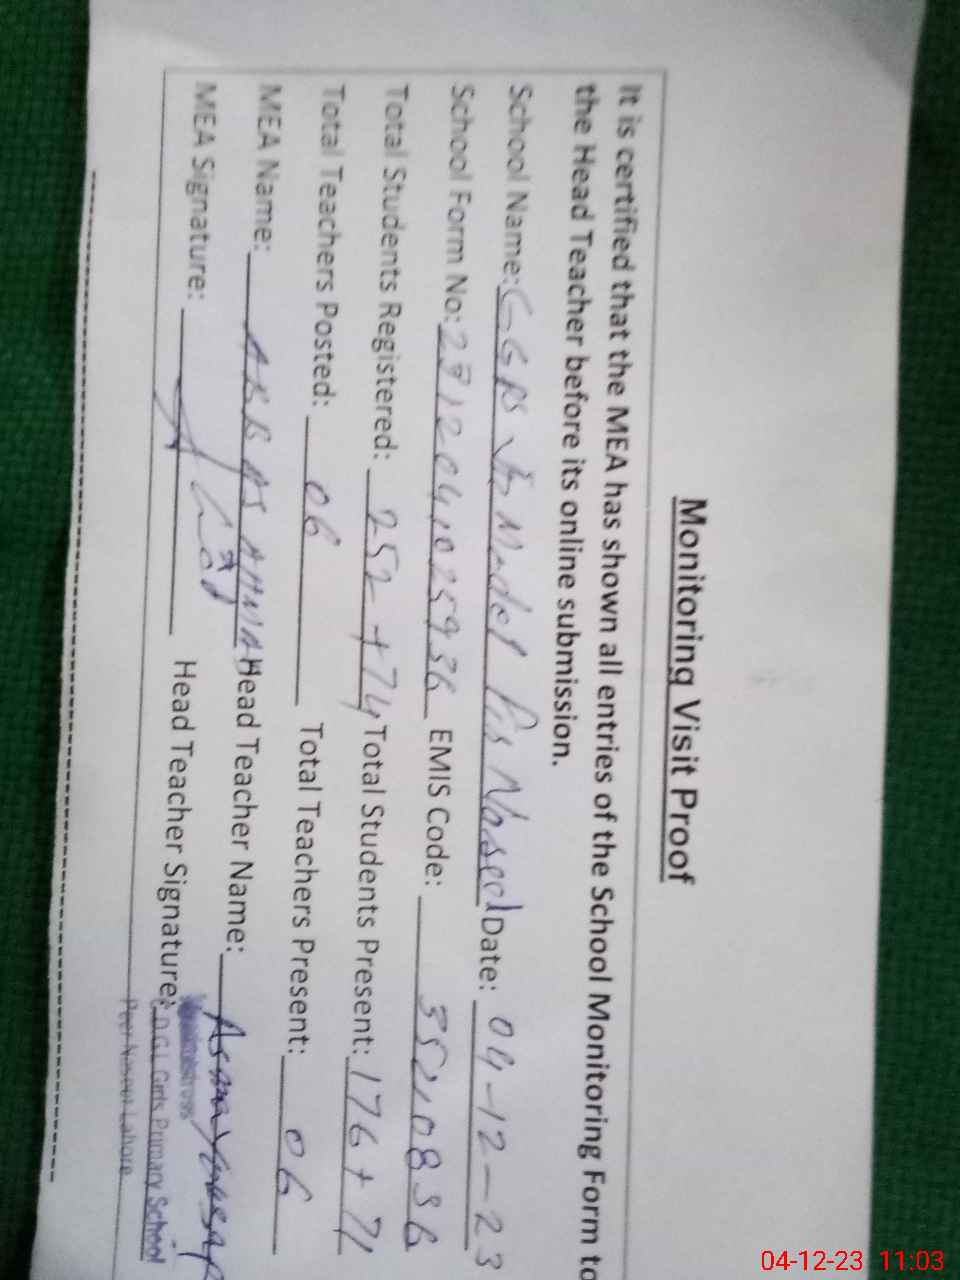 Monitoring Visit Proof
It is certified that the MEA has shown all entries of the School Monitoring Form to
the Head Teacher before its online submission.
School Name: GGPS Model Date: 04-12-23
School Form No: 2312041025936 EMIS Code: 35210836
Total Students Registered: 252+74 Total Students Present: 176+71
Total Teachers Posted: 06 Total Teachers Present: 06
MEA Name: ABBAS AHMAD Head Teacher Name: Asma Yousaf
MEA Signature: Head Teacher Signature:
Girls Primary School
Lahore
04-12-23 11:03